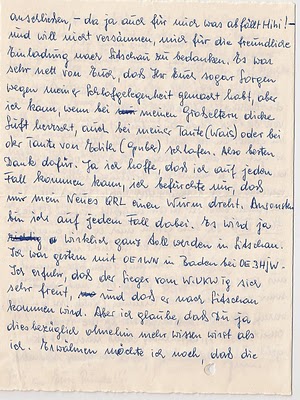 anschließen, - da ja auch für mich was abfällt Hihi! -
und will nicht versäumen, mich für die freundliche
Einladung nach Litschau zu bedanken. Es war
sehr nett von Euch, daß Ihr Euch sogar Sorgen
wegen meiner Schlafgelegenheit gemacht habt, aber
ich kann, wenn bei meinen Großeltern dicke
Luft herrscht, auch bei meiner Tante (Wais) oder bei
der Tante von Edith (Gruber) schlafen. Also besten
Dank dafür. Ja ich hoffe, daß ich auf jeden
Fall kommen kann, ich befürchte nur, daß
mir mein Neues QRL einen Wurm dreht. Ansonsten
bin ich auf jedem Fall dabei. Es wird ja
wirklich ganz toll werden in Litschau.
Ich war gestern mit OE1WN in Baden bei OE3HJW.
Ich erfuhr, daß der Sieger vom WiUKWTg sich
sehr freut, und daß er nach Litschau
kommen wird. Aber ich glaube, daß Du ja
diesbezüglich ohnehin mehr wissen wirst als
ich. Erwähnen möchte ich noch, daß die